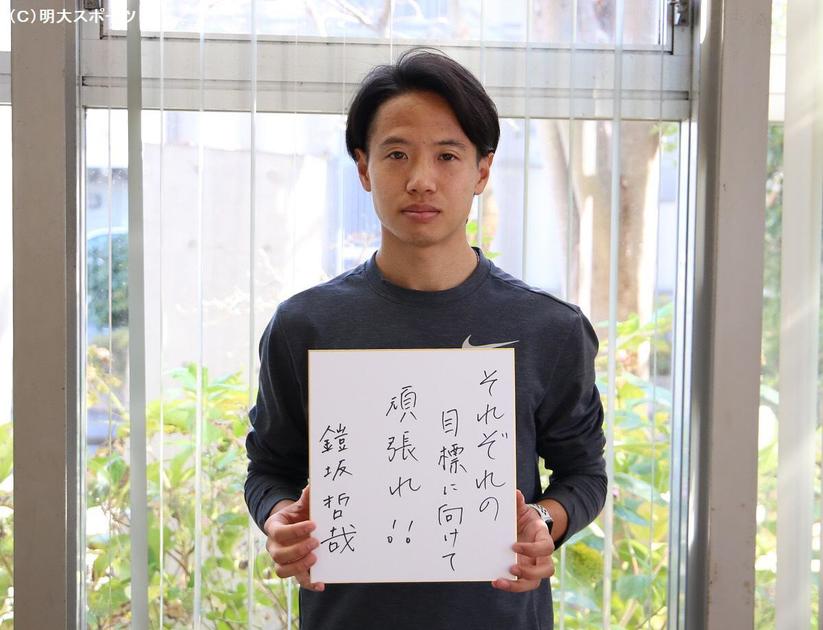 (C)明大スポーツ
それぞれの
目標に向けて
頑張れ!!
鎧坂哲哉